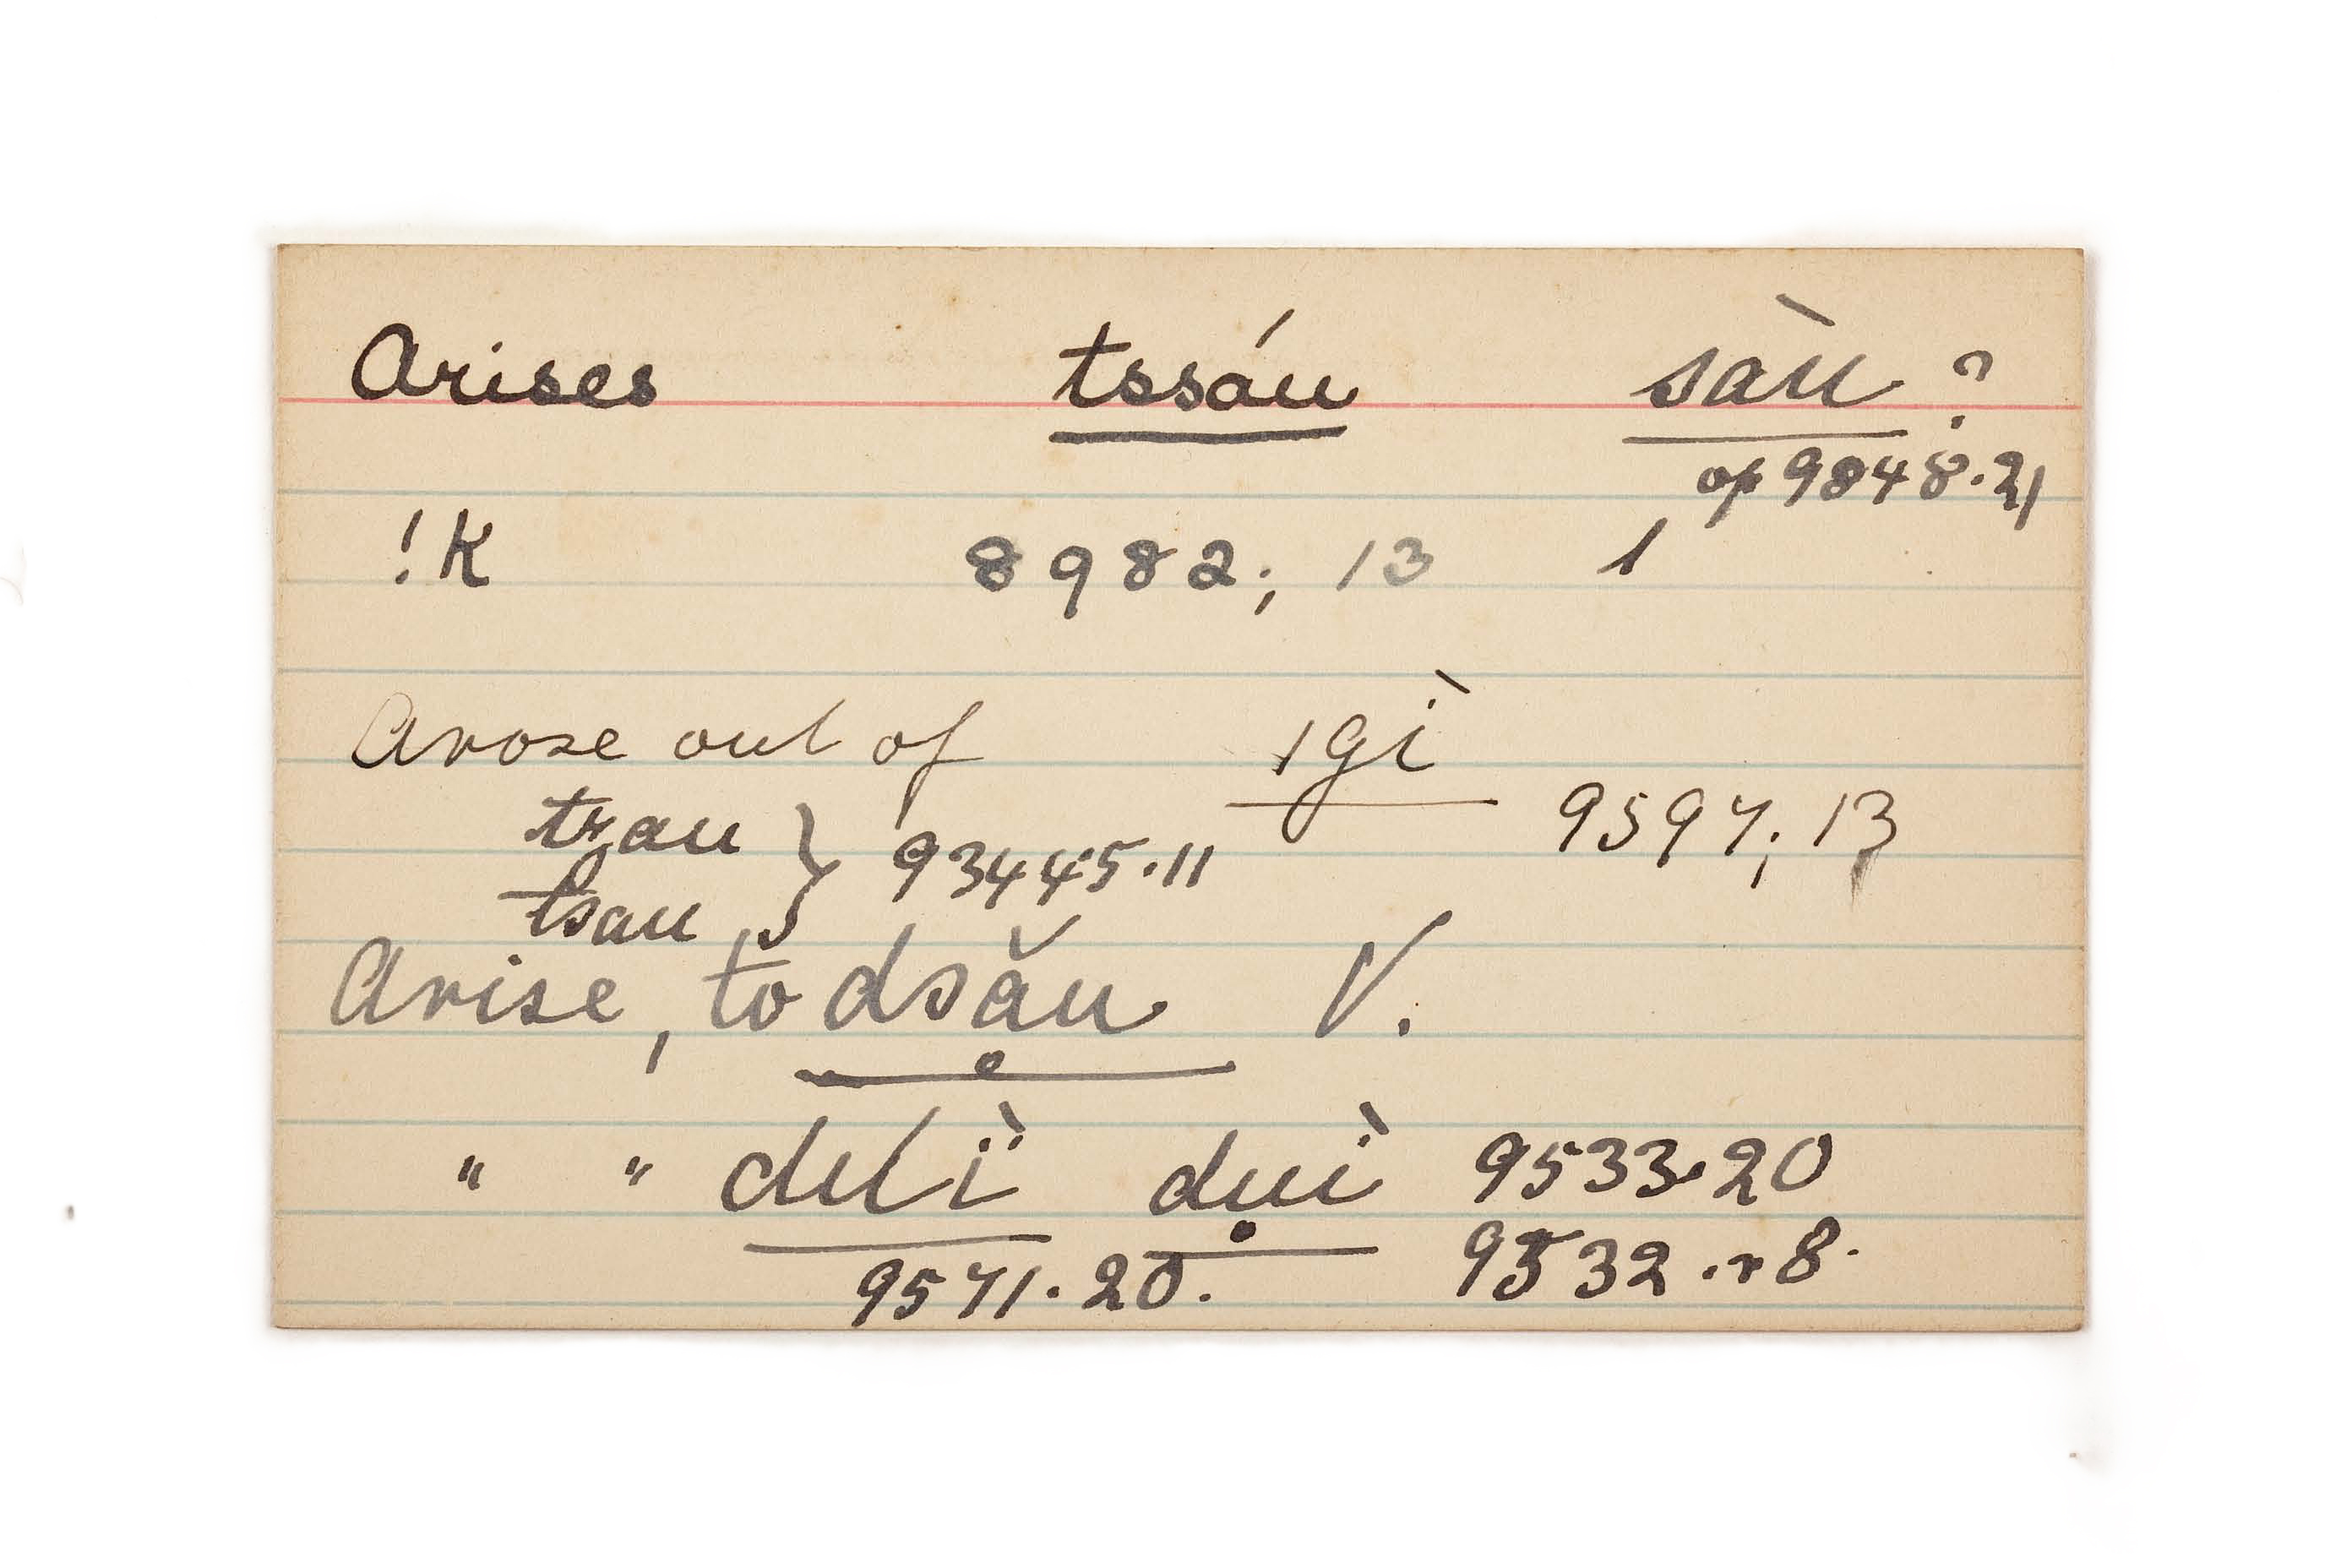 Arises tssáu sàu ?
op 9848.21
!K 8982; 13
Arose out of ɪgì
9597; 13
tsau } 93445.11
Arise, to dsău V.
" " dulì dụì 9533.20
9571.20. 9532. 8.